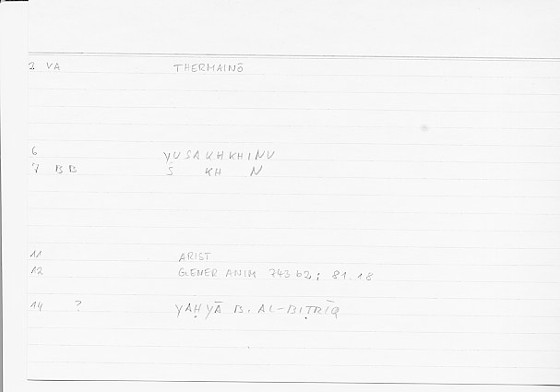 1 VA THERMAINŌ
6 YUSAKHKHINU
7 BB S KH N
11 ARIST
12 GENER ANIM 743 b2; 81.18
14 ? YAḤYĀ B. AL-BIṬRĪQ